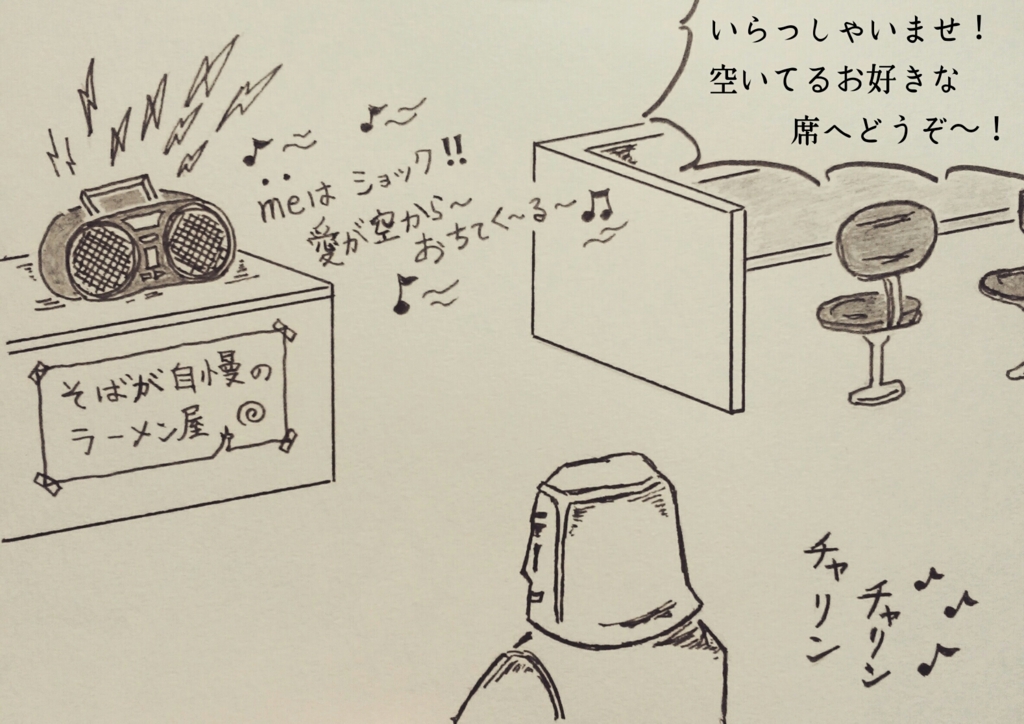 いらっしゃいませ！
空いてるお好きな
席へどうぞ〜！
meは ショック!!
愛が空から〜
おちてく〜る〜
そばが自慢の
ラーメン屋
チャリン
チャリン